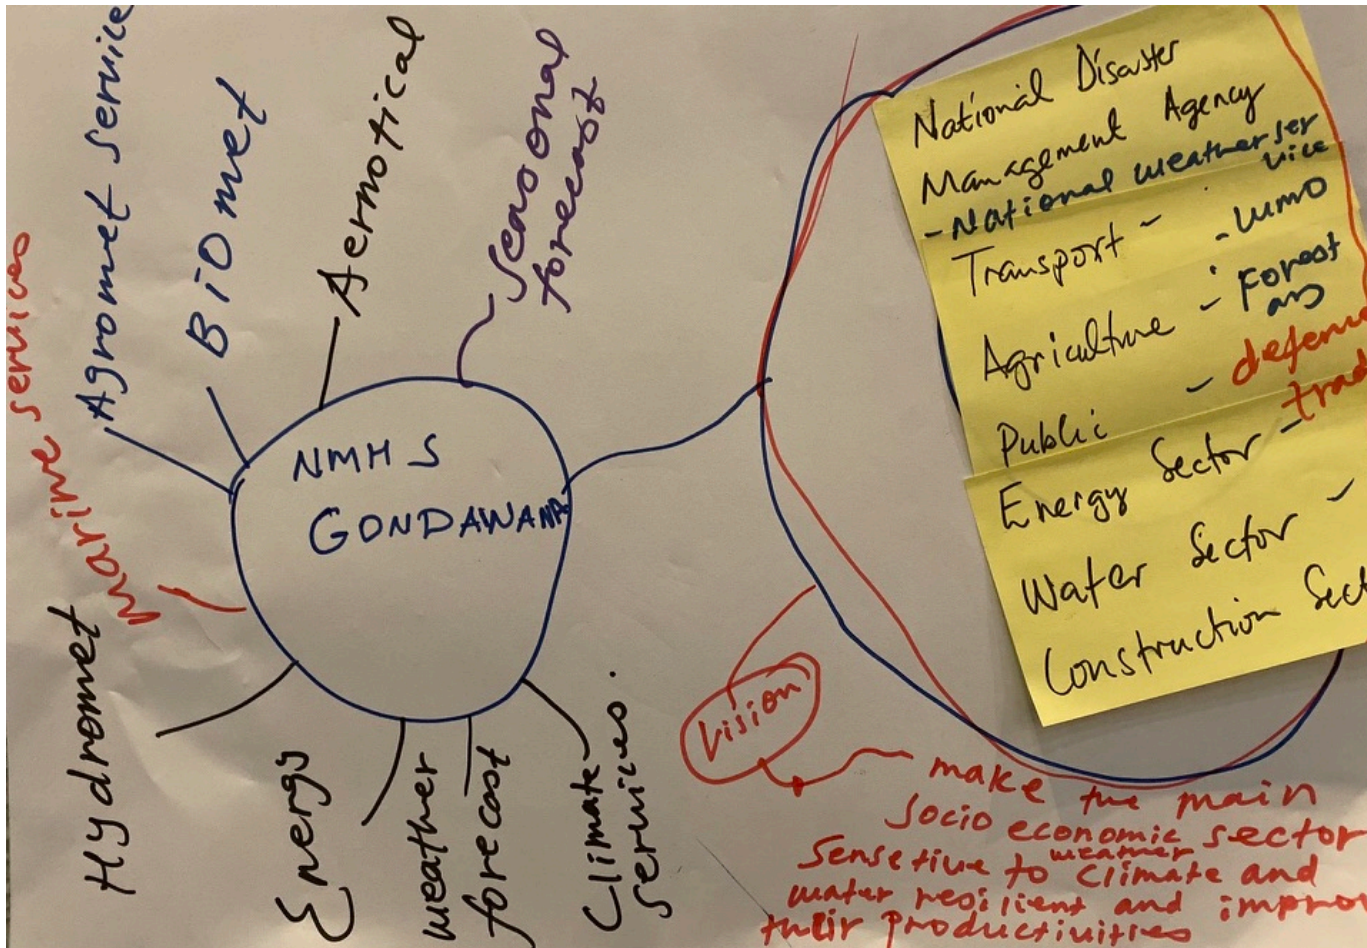 Agromet service
BiOmet
Aernotical
Seasonal
forecast
marine services
NMHS
GONDAWANA
Hydromet
Energy
weather
forecast
Climate
services.
National Disaster
Management Agency
- National weather ser
vice
Transport -
- WMO
Agriculture - Forest
Public - defence
Energy Sector - trad
Water Sector -
Construction Sect
Vision
make the main
Socio economic sector
Sensetive to weather climate and
water resilient and improv
their productivities